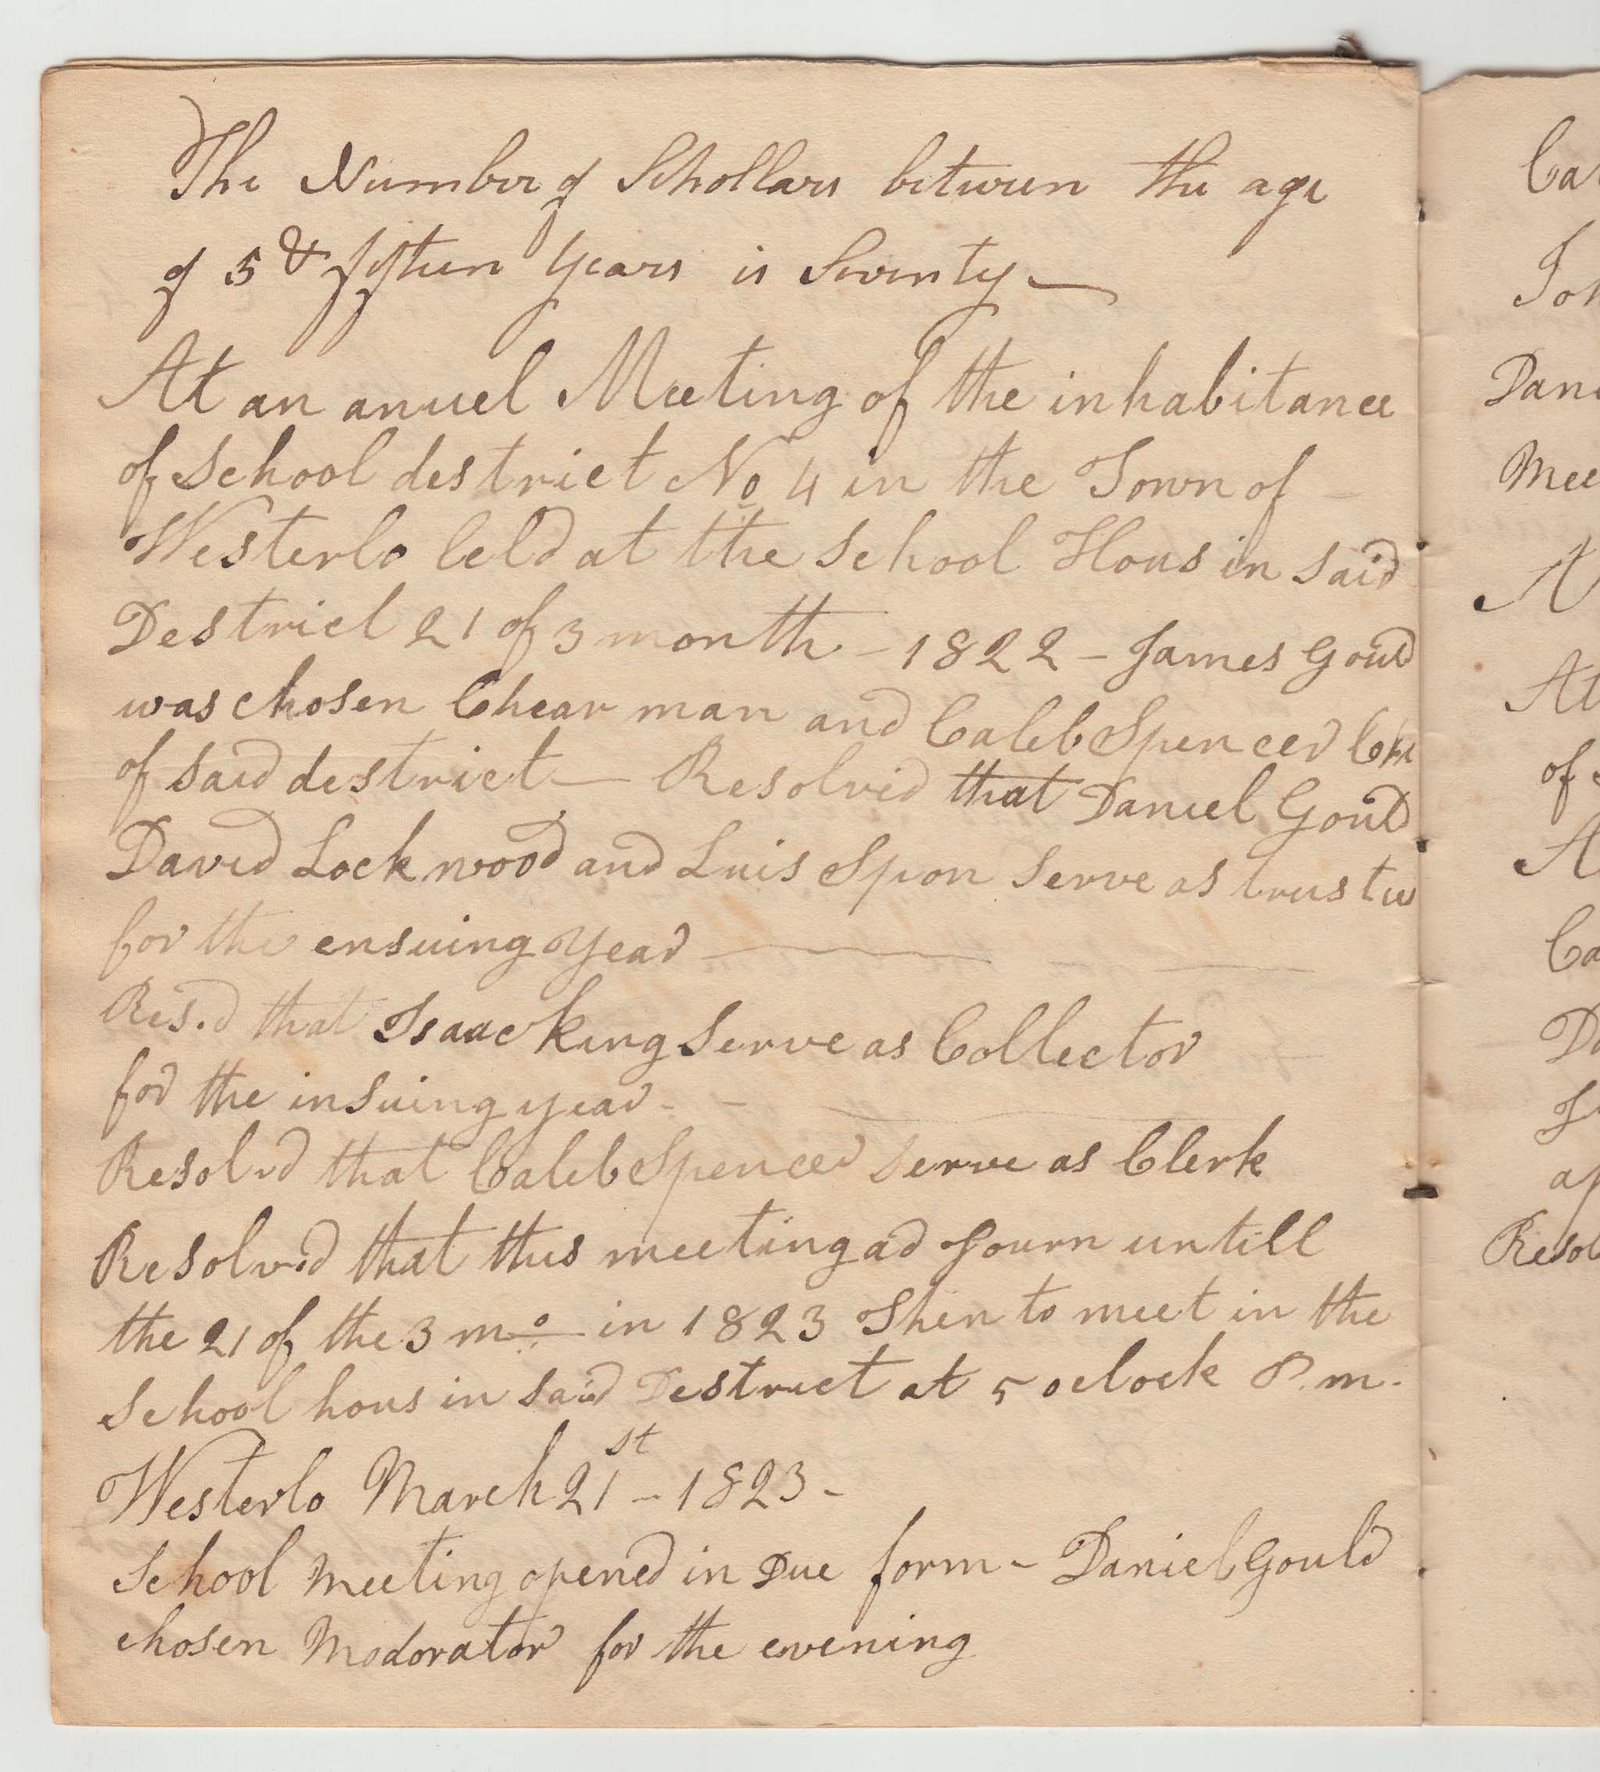 The Number of Schollars between the age
of 5 & fifteen Years is Seventy
At an anuel Meeting of the inhabitance
of School destrict No 4 in the Town of
Westerlo held at the School Hous in Said
Destrict 21 of 3 month - 1822 - James Gould
was chosen Chear man and Caleb Spencer Clk
of Said destrict - Resolved that Daniel Gould
David Lockwood and Luis Spon Serve as
for the ensuing Year
Res.d that Isaac King Serve as Collector
for the insuing year - -
Resolvd that Caleb Spencer Serve as Clerk
Resolved that this meeting ad Journ untill
the 21 of the 3 mo in 1823 Then to meet in the
School hous in Said Destrict at 5 oclock P.m.
Westerlo March 21st - 1823 -
School Meeting opened in Due form - Daniel Gould
chosen Modorator for the evening
Dan
Mee
At
of
Resol